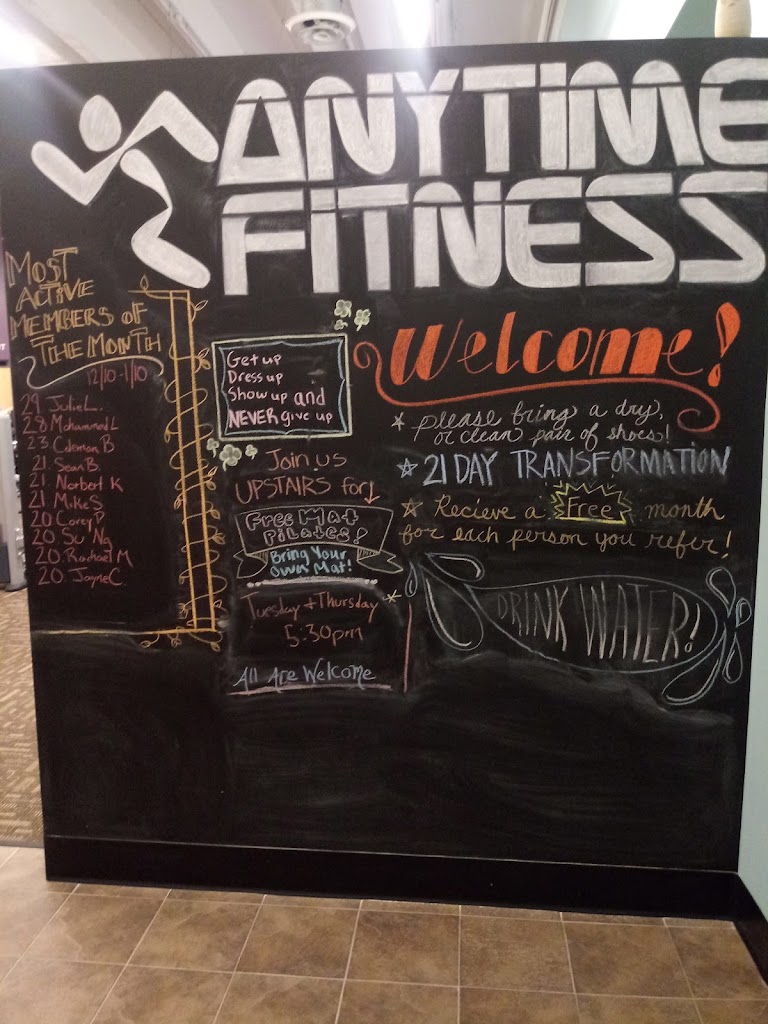 ANYTIME
FITNESS
MOST
ACTIVE
MEMBERS OF
THE MONTH
12/10-1/10
29 Julie L.
28 Mohammed L
23 Coleman B
21 Sean B.
21 Norbert K
21 Mike S
20 Corey P
20 Su Ng
20 Rachael M
20 Jayne C.
Get up
Dress up
Show up and
NEVER give up
Join us
UPSTAIRS for
Free Mat
Pilates!
Bring Your
Own Mat!
Tuesday + Thursday
5:30pm
All Are Welcome
Welcome!
please bring a dry,
or clean pair of shoes!
21 DAY TRANSFORMATION
Recieve a Free month
for each person you refer!
DRINK WATER!